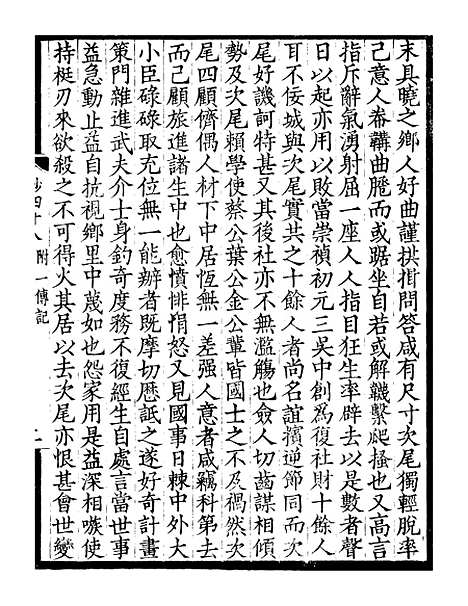 末具曉之鄉人好曲謹拱揖問答咸有尺寸次尾獨輕脫率
己意人奉韝曲䠆而或踞坐自若或解韤繫爬搔也又高言
指斥辭氣湧射屈一座人人指目狂生率辟去以是數者聲
日以起亦用以敗當崇禎初元三吳中創為復社財十餘人
耳不佞城與次尾實共之十餘人者尚名誼擯逆節同而次
尾好譏訶特甚又其後社亦不無濫觴也僉人切齒謀相傾
勢及次尾賴學使蔡公葉公金公輩皆國士之不及禍然次
尾四顧儕偶人材下中居恆無一差强人意者咸竊科第去
而己顧旅進諸生中也愈憤悱悁怒又見國事日棘中外大
小臣碌碌取充位無一能辦者既摩切厯詆之遂好奇計畫
策門雜進武夫介士身釣奇度務不復經生自處言當世事
益急動止益自抗視鄉里中蔑如也怨家用是益深相嗾使
持梃刃來欲殺之不可得火其居以去次尾亦恨甚會世變
附一傳記